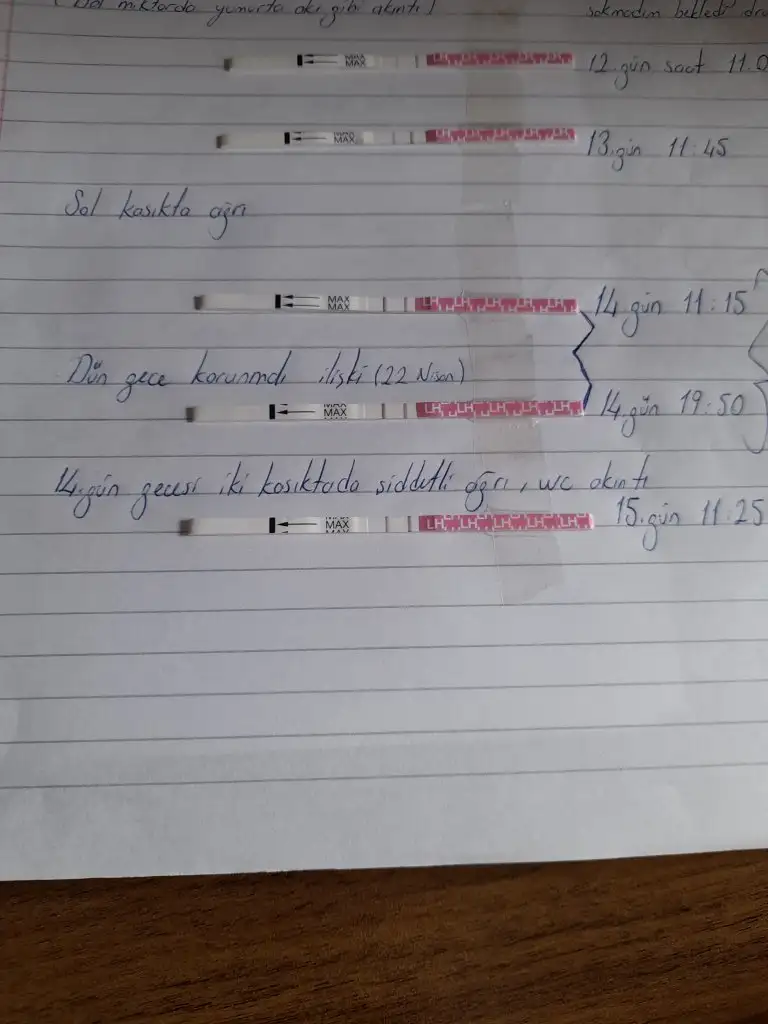 (Bol miktarda yumurta akı gibi akıntı)
sokmadan bekledi
MAX
MAX
12.gün saat 11.0
MAX
MAX
13.gün 11:45
Sol kasıkta ağrı
MAX
MAX
LH LH LH LH LH
14.gün 11:15
Dün gece korunmalı ilişki (22 Nisan)
MAX
MAX
LH LH LH LH LH
14.gün 19:50
14.gün gecesi iki kasıktada şiddetli ağrı, wc akıntı
MAX
MAX
LH LH LH LH LH
15.gün 11:25